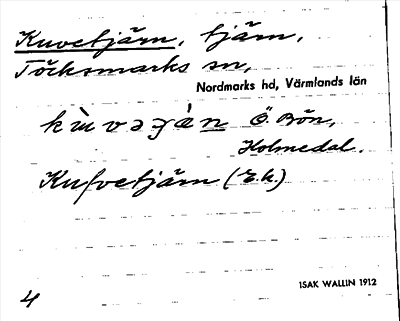 Kuvetjärn, tjärn,
Töcksmarks sn,
Nordmarks hd, Värmlands län
Ö. Bön,
Holmedal.
Kufvetjärn (E.k.)
ISAK WALLIN 1912
4